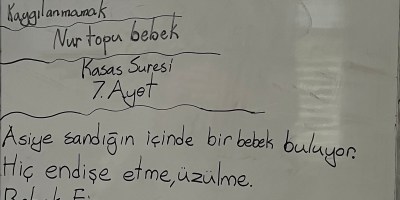 Kaygılanmamak
Nur topu bebek
Kasas Suresi
7. Ayet
Asiye sandığın içinde bir bebek buluyor.
Hiç endişe etme, üzülme.